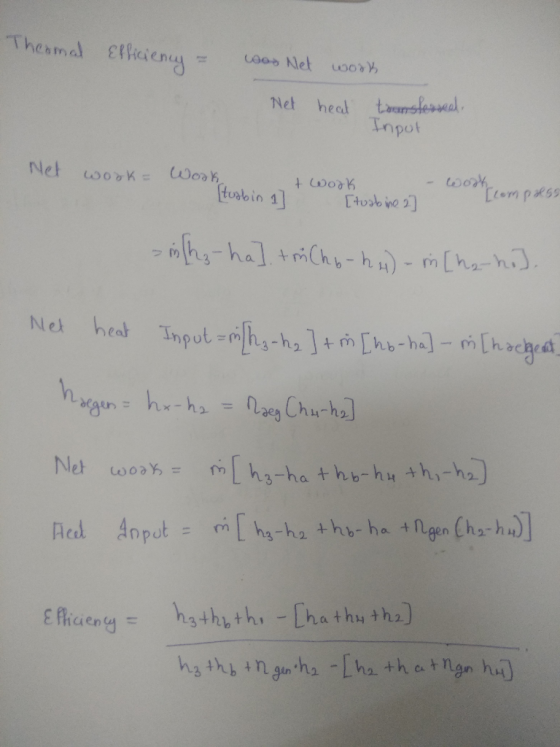 Thermal Efficiency = Net work
Net heat transferred.
Input
Net work = Work[turbin 1] + work[turbine 2] - work[compress
= ṁ[h3-ha] + ṁ(hb-h4) - ṁ[h2-h1].
Net heat Input = ṁ[h3-h2] + ṁ[hb-ha] - ṁ[
hregen = hx-h2 = ηreg[h4-h2]
Net work = ṁ[h3-ha+hb-h4+h1-h2]
Input = ṁ[h3-h2+hb-ha+ηgen(h2-h4)]
Efficiency = h3+hb+h1 - [ha+h4+h2]
h3+hb+ηgen·h2 - [h2+ha+ηgen h4]